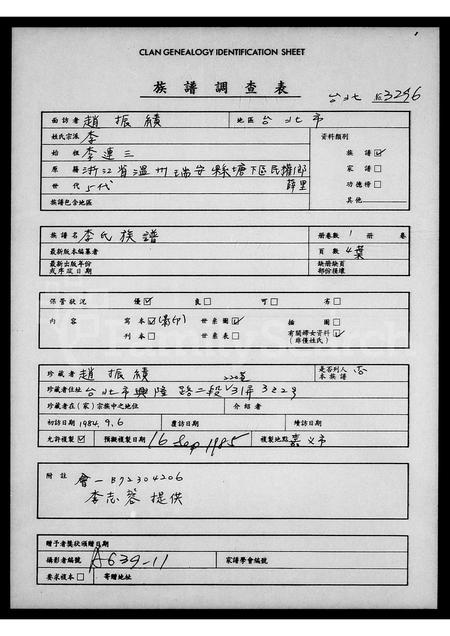 CLAN GENEALOGY IDENTIFICATION SHEET
族譜調查表
台北 3296
面訪者 趙振績 地區 台北市
姓氏宗派 李 資料類別
始祖 李連三 族譜 ☑
原籍 浙江省溫州瑞安縣塘下區民權鄉薛里 家譜 □
世代 5代 功德榜 □
族譜包含地區 其他
族譜名 李氏族譜 冊卷數 1 冊 卷
最新版本編纂者 頁數 4葉
最新出版年份或序跋日期 缺冊缺頁部份損壞
保管狀況 優 ☑ 良 □ 可 □ 劣 □
內容 寫本 ☑ (影印) 世系圖 ☑ 插圖 □
刊本 □ 世系表 □ 有關婦女資料 ☑ (非僅姓氏)
珍藏者 趙振績 是否列入本族譜 否
珍藏者住址 台北市興隆路二段220巷31弄3号
珍藏者在(家)宗族中之地位 介紹者
初訪日期 1984.9.6 覆訪日期 續訪日期
允許複製 ☑ 預擬複製日期 16 Sep 1985 複製地點 嘉義市
附註 會一B92304206
李志蓉提供
贈予者獎狀頒贈日期
攝影者編號 A639-11 家譜學會編號
要求複本 □ 寄贈地址